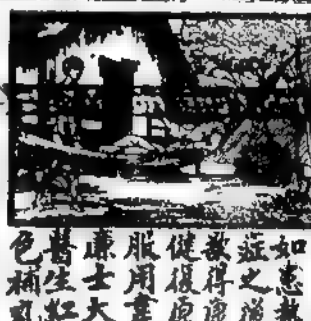 如患熱
症之後
欲得康
健復原
服用韋
廉士大
醫生紅
色補丸